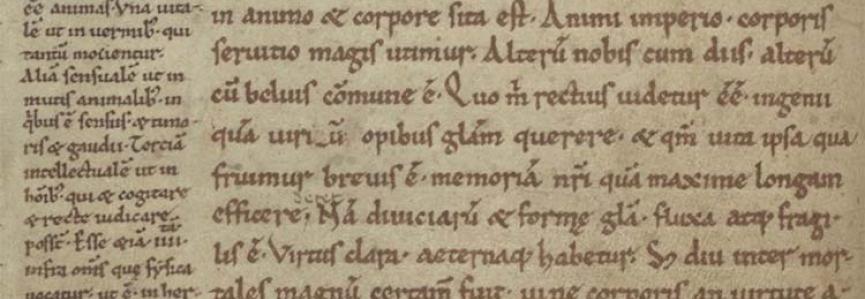 ēē animas. Vna uita-
lē ut in uermib; qui
tantū mouentur.
Aliā sensualē ut in
mutis animalib; in
q̇bus ē sensus & timo-
ris & gaudii. Terciā
intellectualē ut in
hōib; qui & cogitare
& recte iudicare
possē. Esse &iā .iiii.
infra om̄s quę fysica
uocatur. ut ē in her-
in animo & corpore sita est. Animi imperio. corporis
seruitio magis utimur. Alterū nobis cum diis. alterū
cū beluis cōmune ē. Quo m̄ rectius uidetur ēē. ingenii
quā uiriū opibus glām querere. & qm̄ uita ipsa qua
fruimur breuis ē. memoriā nr̄i quā maxime longam
efficere. Nā diuiciarū & formę glā. fluxa atq; fragi-
lis ē. Virtus clara. aeternaq; habetur. S; diu inter mor-
tales magnū certam̄ fuit. ui ne corporis an uirtute a-